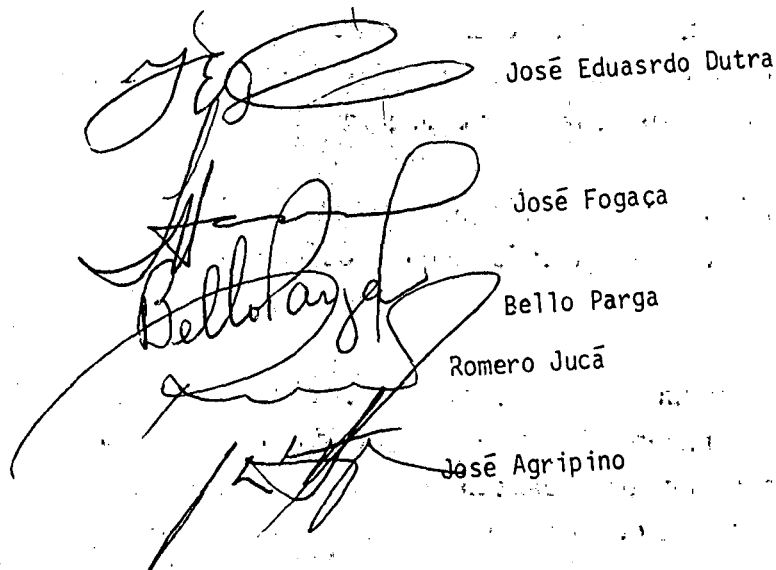 José Eduasrdo Dutra
José Fogaça
Bello Parga
Bello Parga
Romero Jucá
José Agripino